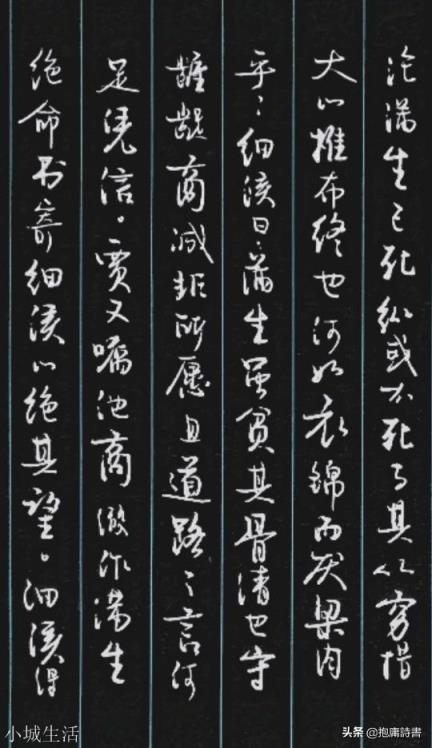 论满生已死纵或不死与其从穷措
大以椎布终也何如衣锦而厌粱肉
乎：细侯曰：满生虽贫其骨清也守
龌龊商诚非所愿且道路之言何
足凭信。贾又嘱他商假作满生
绝命书寄细侯以绝其望。细侯得
小城生活
头条 @抱庸詩書